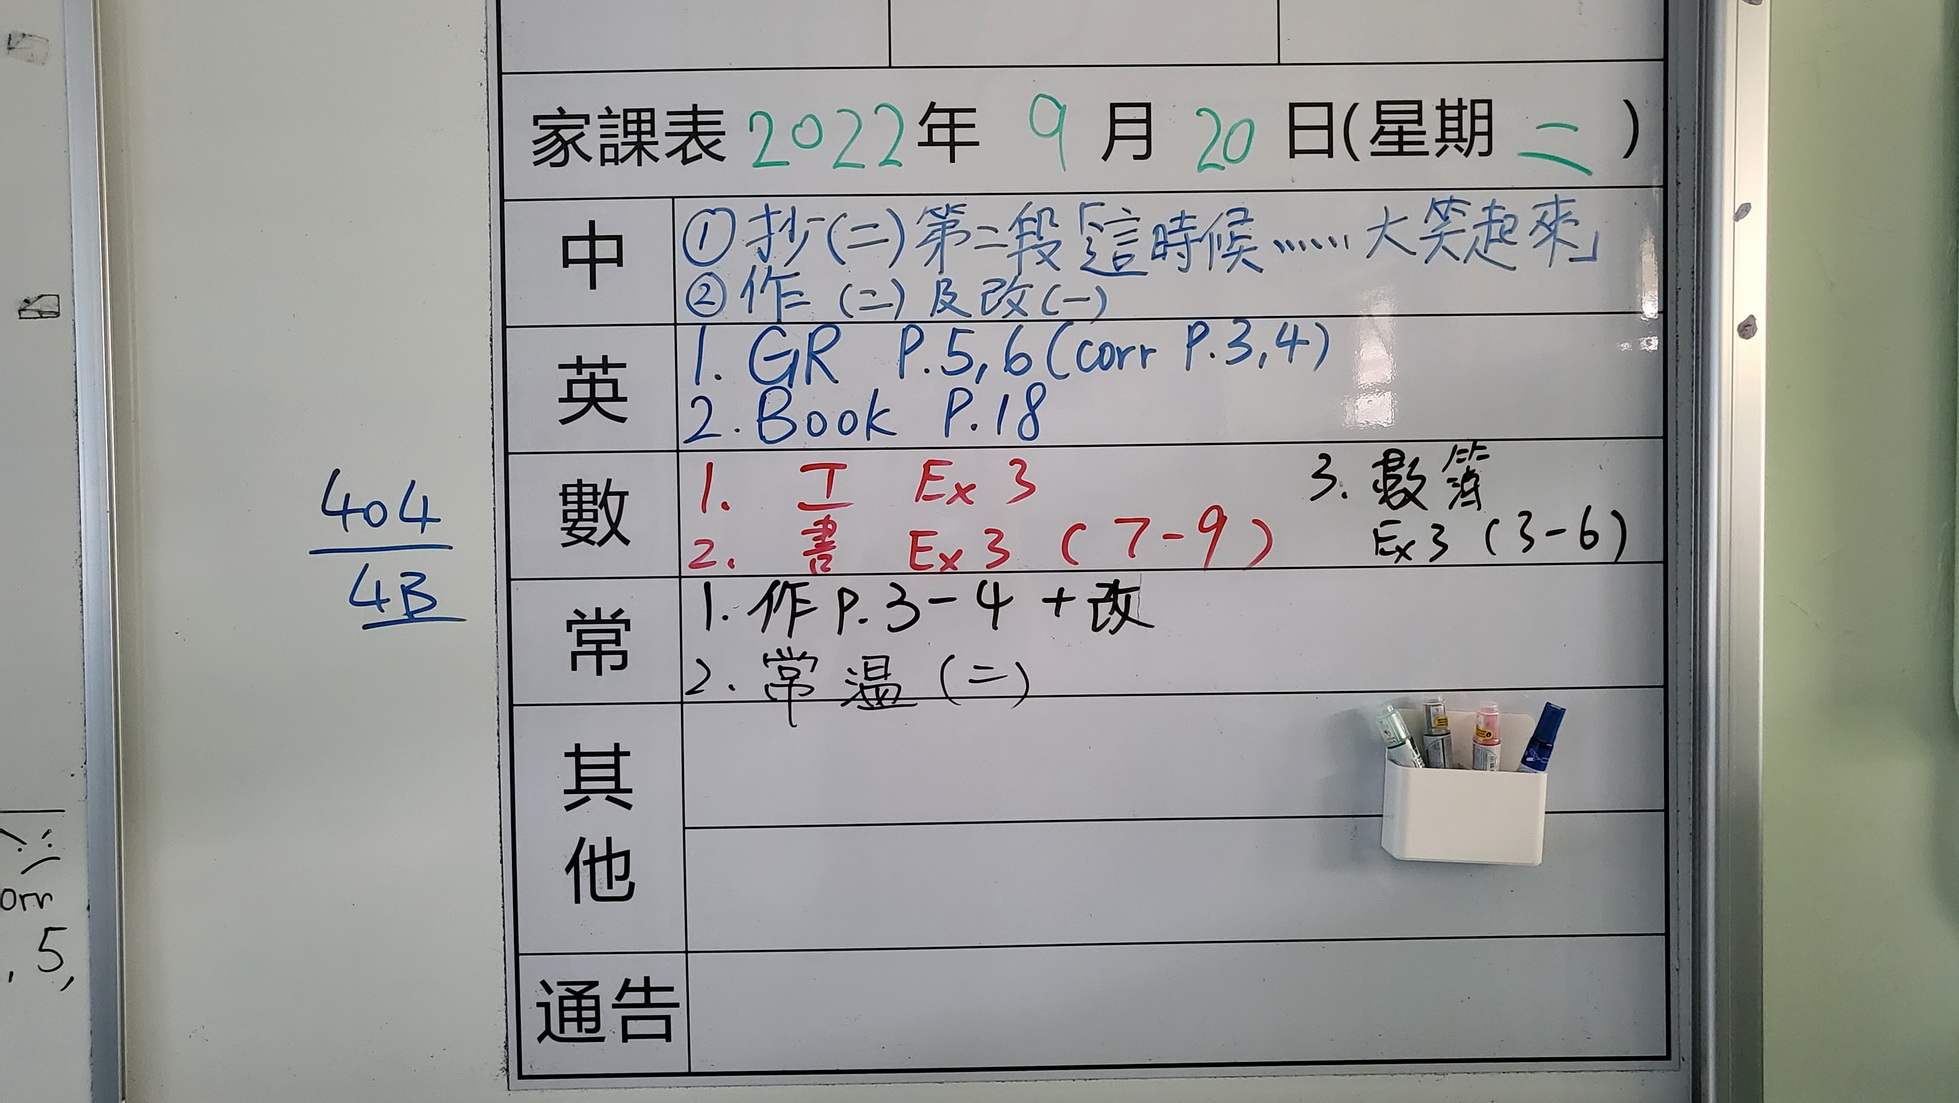 家課表 2022年 9月 20日(星期二)
中
①抄(二)第二段「這時候……大笑起來」
②作(二)及改(一)
英
1. GR P.5,6(corr P.3,4)
2. Book P.18
數
1. 工 Ex 3
2. 書 Ex 3 (7-9)
3. 數簿
Ex 3 (3-6)
常
1. 作 P.3-4 +改
2. 常溫(二)
其他
通告
404
4B
orr
, 5,